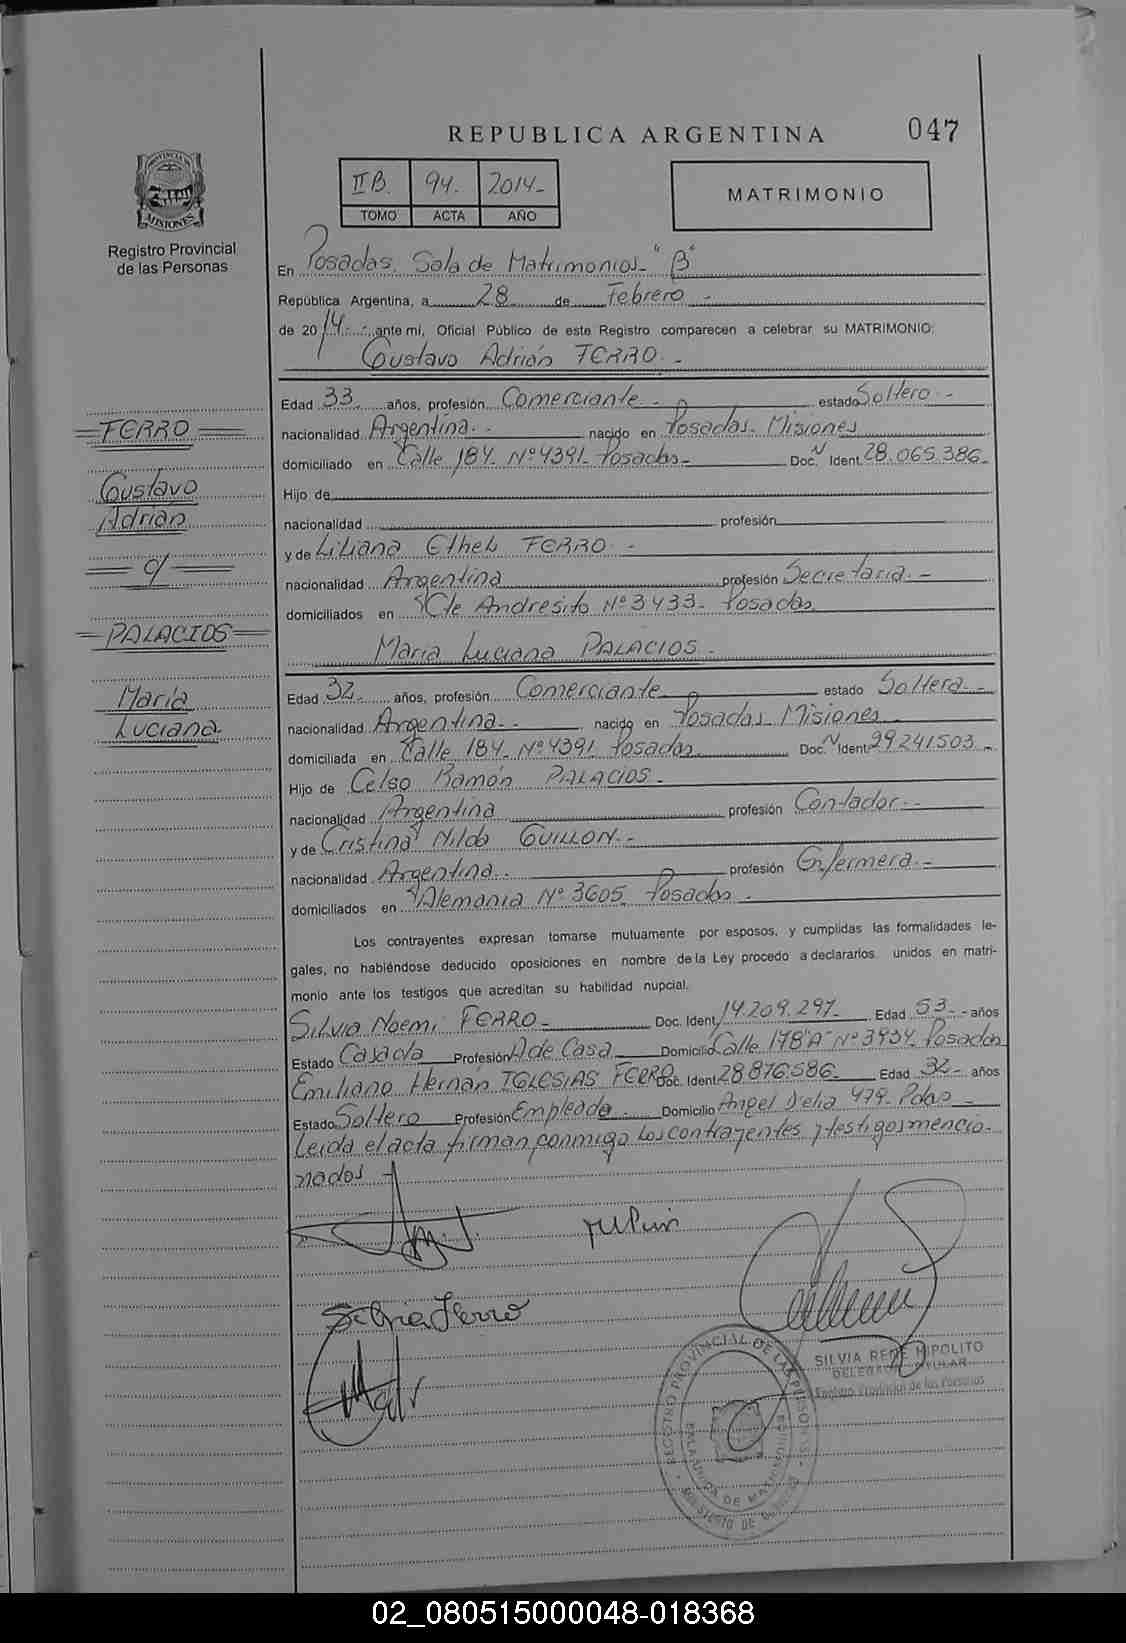 REPUBLICA ARGENTINA 047
II B. 94. 2014-
TOMO ACTA AÑO
MATRIMONIO
PROVINCIA DE
MISIONES
Registro Provincial
de las Personas
En Posadas, Sala de Matrimonios - "B"
República Argentina, a 28 de Febrero -
de 2014 - ante mí, Oficial Público de este Registro comparecen a celebrar su MATRIMONIO:
Gustavo Adrián FERRO. -
Edad 33 años, profesión Comerciante - estado Soltero -
nacionalidad Argentina. - nacido en Posadas - Misiones
domiciliado en Calle 184 - Nº 4391 - Posadas - Doc. N Ident. 28.065.386 -
Hijo de
nacionalidad profesión
y de Liliana Ethel FERRO. -
nacionalidad Argentina profesión Secretaria. -
domiciliados en Cte Andresito Nº 3433 - Posadas
María Luciana PALACIOS -
Edad 32 años, profesión Comerciante estado Soltera. -
nacionalidad Argentina. - nacido en Posadas - Misiones
domiciliada en Calle 184 - Nº 4391 Posadas Doc. N Ident. 29.241503 -
Hijo de Celso Ramón PALACIOS -
nacionalidad Argentina profesión Contador. -
y de Cristina Nilda GUILLON. -
nacionalidad Argentina. - profesión Enfermera. -
domiciliados en Alemania Nº 3605 Posadas -
Los contrayentes expresan tomarse mutuamente por esposos, y cumplidas las formalidades le-
gales, no habiéndose deducido oposiciones en nombre de la Ley procedo a declararlos unidos en matri-
monio ante los testigos que acreditan su habilidad nupcial.
Silvia Noemi FERRO - Doc. Ident. 14.209.297 - Edad 53 - años
Estado Casada Profesión A de Casa Domicilio Calle 178 "A" Nº 3934 Posadas
Emiliano Hernán IGLESIAS FERRO Doc. Ident. 28.876.586 - Edad 32 - años
Estado Soltero Profesión Empleado - Domicilio Angel D'elia 479 - Pdas -
Leida el acta firman conmigo los contrayentes y testigos mencio-
nados -
Silvia Ferro
SILVIA RENE HIPOLITO
DELEGADA TITULAR
Registro Provincial de las Personas
REGISTRO PROVINCIAL DE LAS PERSONAS
FERRO
Gustavo
Adrián
c/
PALACIOS
María
Luciana
02_080515000048-018368